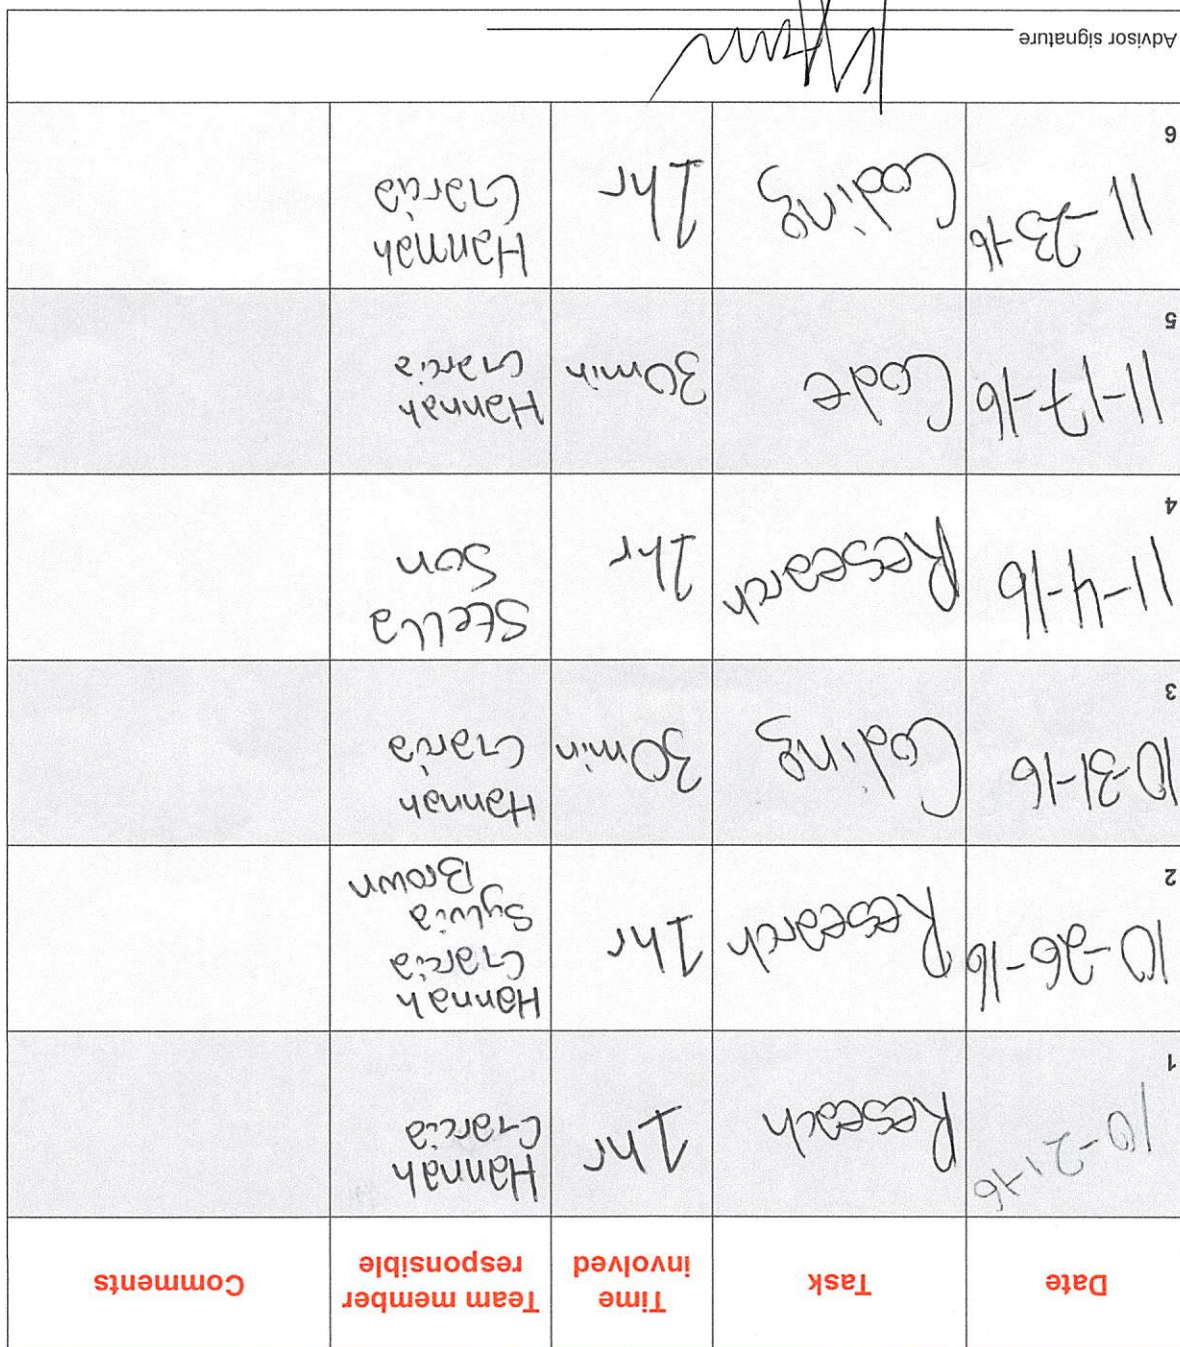 Date Task Time involved Team member responsible Comments
1 10-21-16 Reseach 1hr Hannah Garcia
2 10-26-16 Research 1hr Hannah Garcia Sylvia Brown
3 10-31-16 Coding 30min Hannah Garcia
4 11-4-16 Research 1hr Stella Son
5 11-17-16 Code 30min Hannah Garcia
6 11-23-16 Coding 1hr Hannah Garcia
Advisor signature